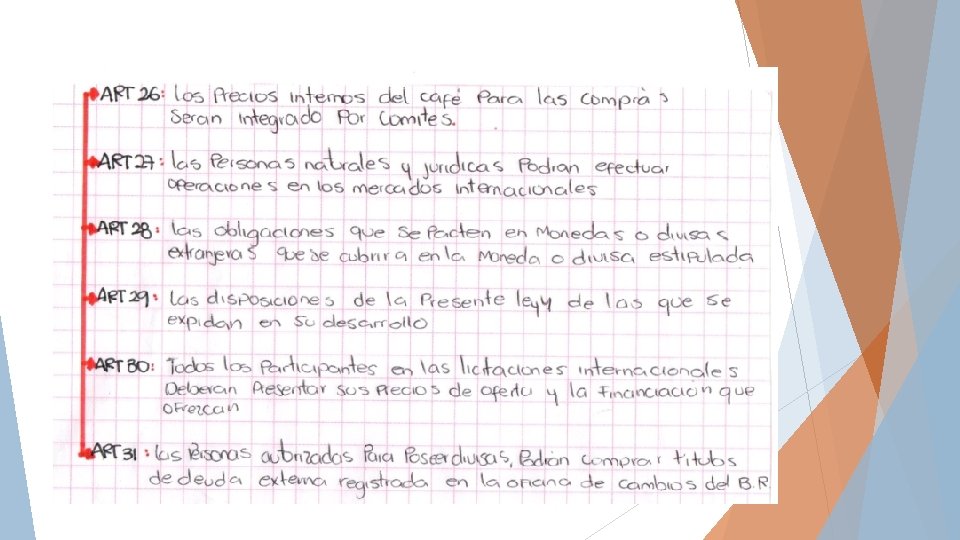 ART 26: los Precios internos del café Para las compras
Seran integrado Por Comites.
ART 27: las Personas naturales y juridicas Podran efectuar
operaciones en los mercados internacionales
ART 28: las obligaciones que se Pacten en Monedas o divisas
extranjeras que se cubrira en la Moneda o divisa estipulada
ART 29: las disposiciones de la Presente leyy de las que se
expidan en su desarrollo
ART 30: Todos los Participantes en las licitaciones internacionales
Deberan Presentar sus Precios de oferta y la financiación que
ofrezcan
ART 31: las Personas autorizadas Para Poseer divisas, Podrán comprar titulos
de deuda externa registrada en la oficina de cambios del B.R.